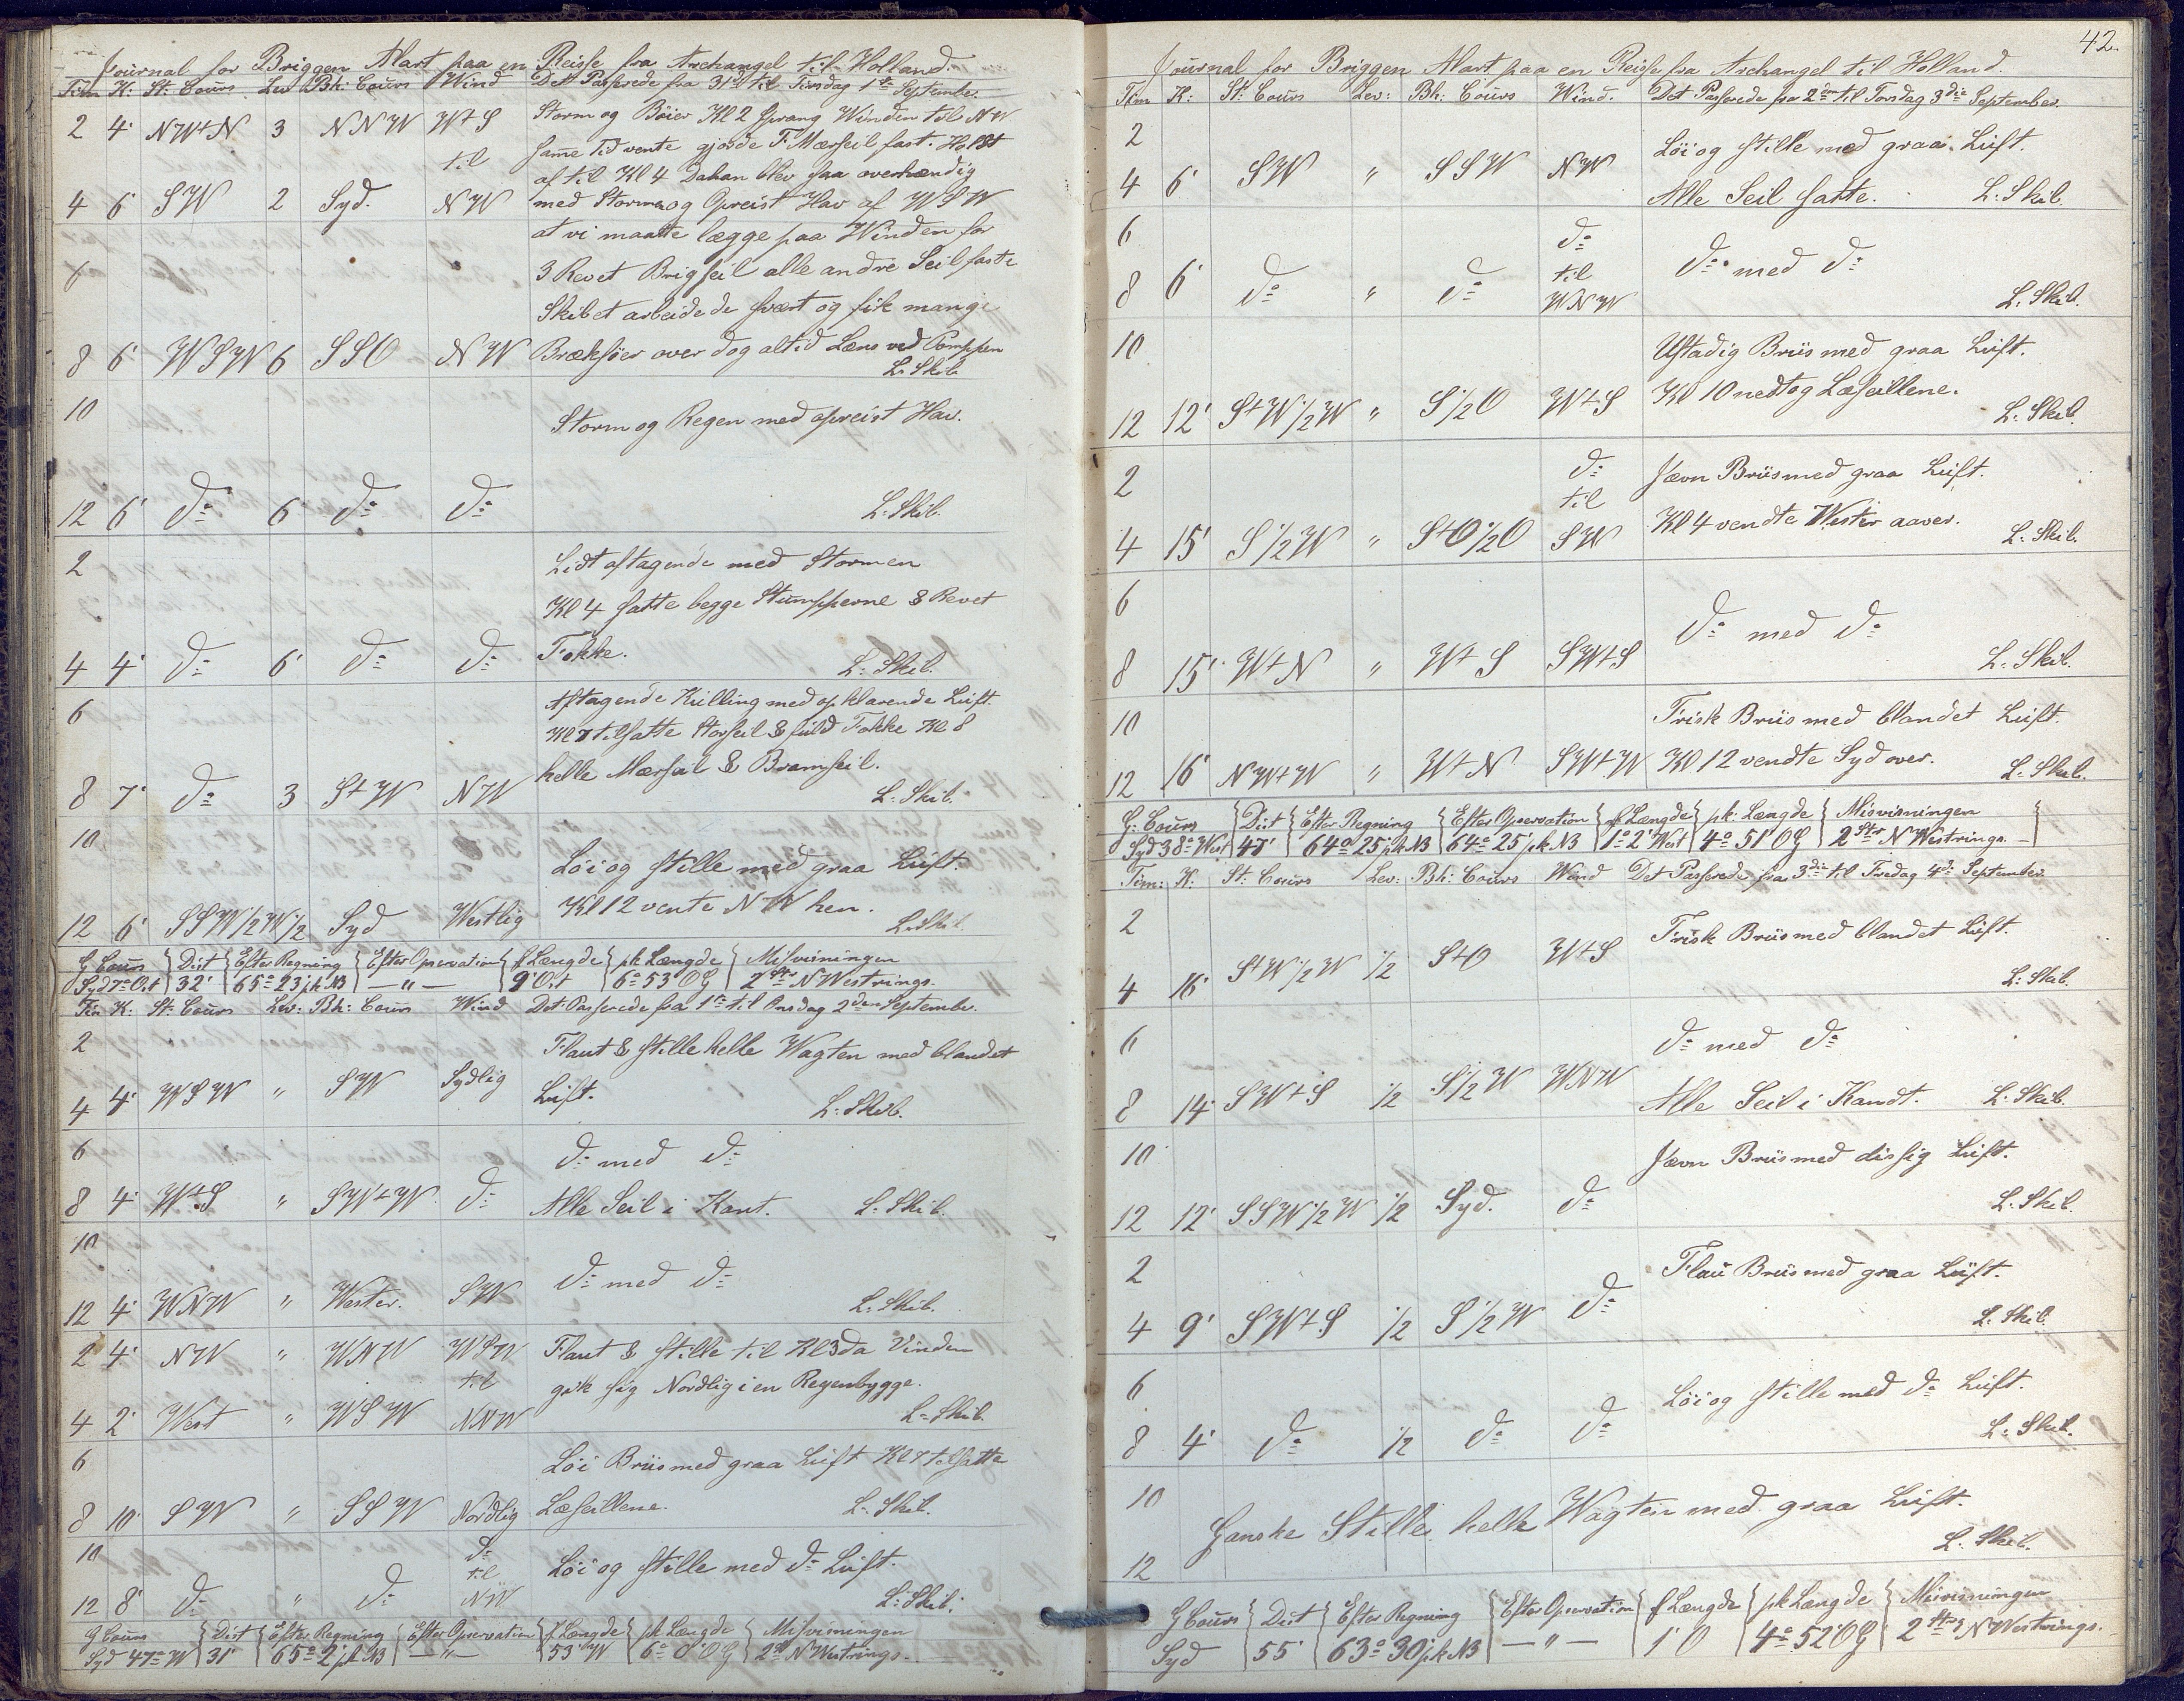 Journal for Briggen Mart paa en Reise fra Archangel til Holland.
Tim K: St: Cours Lev Bh: Cours Wind Det Passerede fra 31te til Tirsdag 1ste September.
2 4' NW+N 3 NNW W+S Storm og Böier Kl 2 sprang Winden til NW
til same Tid vente gjorde F. Mærseil fast. Holdt
af til Kl 4 Dahan blev saa overhændig
4 6' SW 2 Syd. NW med Storm og Opreist Hav af WSW
at vi maatte lægge paa Winden for
6 3 Revet Brigseil alle andre Seil faste
Skibet arbeidede svært og fik mange
8 6' WSW 6 SSO NW Bræksöer over dog altid Læns ved Pomppen
L: Skib.
10 Storm og Regen med opreist Hav.
12 6' do 6 do do L: Skib.
2 Lidt aftagende med Stormen
Kl 4 satte begge Stumpperne & Revet
4 4' do 6' do do Fokke. L: Skib.
6 Aftagende Kulling med opklarende Luft.
Kl 7 tilsatte Storseil & fuld Fokke Kl 8
helle Mærseil & Bramseil.
8 7' do 3 S+W NW L: Skib.
10 Löi og stille med graa Luft.
Kl 12 vente NW hen.
12 6' SSW½W ½ Syd Westlig L: Skib.
G Cours Dist Efter Regning Efter Opservation f Længde pk Længde Misvisningen
Syd 7o Ost 32' 65o 23' pk NB — " — 9' Ost 6o 53' OG 2 Str NWestrings.
Tim K: St: Cours Lev: Bh: Cours Wind Det Passerede fra 1ste til Onsdag 2den September.
2 Flaut & stille helle Wagten med blandet
4 4' WSW " SW Sydlig Luft. L: Skib.
6 do med do
8 4' W+S " SW+W do Alle Seil i Kant. L: Skib.
10 do med do
12 4' WNW " Wester. SW L: Skib.
2 4' NW " WNW WSW Flaut & stille til Kl 3 da Vinden
til gik sig Nordlig i en Regenbygge.
4 2' West " WSW NNW L: Skib.
6 Löi Briis med graa Luft Kl 8 tilsatte
8 10' SW " SSW Nordlig Læseillene. L: Skib.
10 do
til Löi og stille med do Luft.
12 8' do " do NW L: Skib.
G Cours Dist Efter Regning Efter Opservation f Længde pk Længde Misvisningen
Syd 47o W 31' 65o 2' pk NB — " — 53' W 6o 0' OG 2 Str NWestrings.
42.
Journal for Briggen Mart paa en Reise fra Archangel til Holland.
Tim K: St: Cours Lev: Bh: Cours Wind. Det Passerede fra 2den til Torsdag 3die September.
2 Löi og stille med graa Luft.
4 6' SW " SSW NW Alle Seil satte. L: Skib.
6 do
til do med do
8 6' do " do WNW L: Skib.
10 Ustadig Briis med graa Luft.
12 12' S+W½W " S½O W+S Kl 10 nedtog Læseillene. L: Skib.
2 do Jævn Briis med graa Luft.
til
4 15' S½W " S+O½O SW Kl 4 vendte Wester aaver. L: Skib.
6 do med do
8 15' W+N " W+S SW+S L: Skib.
10 Frisk Briis med blandet Luft.
12 16' NW+W " W+N SW+W Kl 12 vendte Syd over. L: Skib.
G: Cours Dist Efter Regning Efter Opservation f Længde pk: Længde Misvisningen
Syd 38o West 47' 64o 25' pk NB 64o 25' pk NB 1o 2' West 4o 51' OG 2 Str NWestrings.
Tim: K: St: Cours Lev: Bh: Cours Wind Det Passerede fra 3die til Fredag 4de September.
2 Frisk Briis med blandet Luft.
4 16' S+W½W ½ S+O W+S L: Skib.
6 do med do
8 14' SW+S ½ S½W WNW Alle Seil i Kandt. L: Skib.
10 Jævn Briis med dissig Luft.
12 12' SSW½W ½ Syd. do L: Skib.
2 Flau Briis med graa Luft.
4 9' SW+S ½ S½W do L: Skib.
6 Löi og stille med do Luft.
8 4' do ½ do do L: Skib.
10 Ganske Stille helle Wagten med graa Luft.
12 L: Skib.
G Cours Dist Efter Regning Efter Opservation f Længde pk Længde Misvisningen
Syd 55' 63o 30' pk NB — " — 1' O 4o 52' OG 2 Str NWestrings.